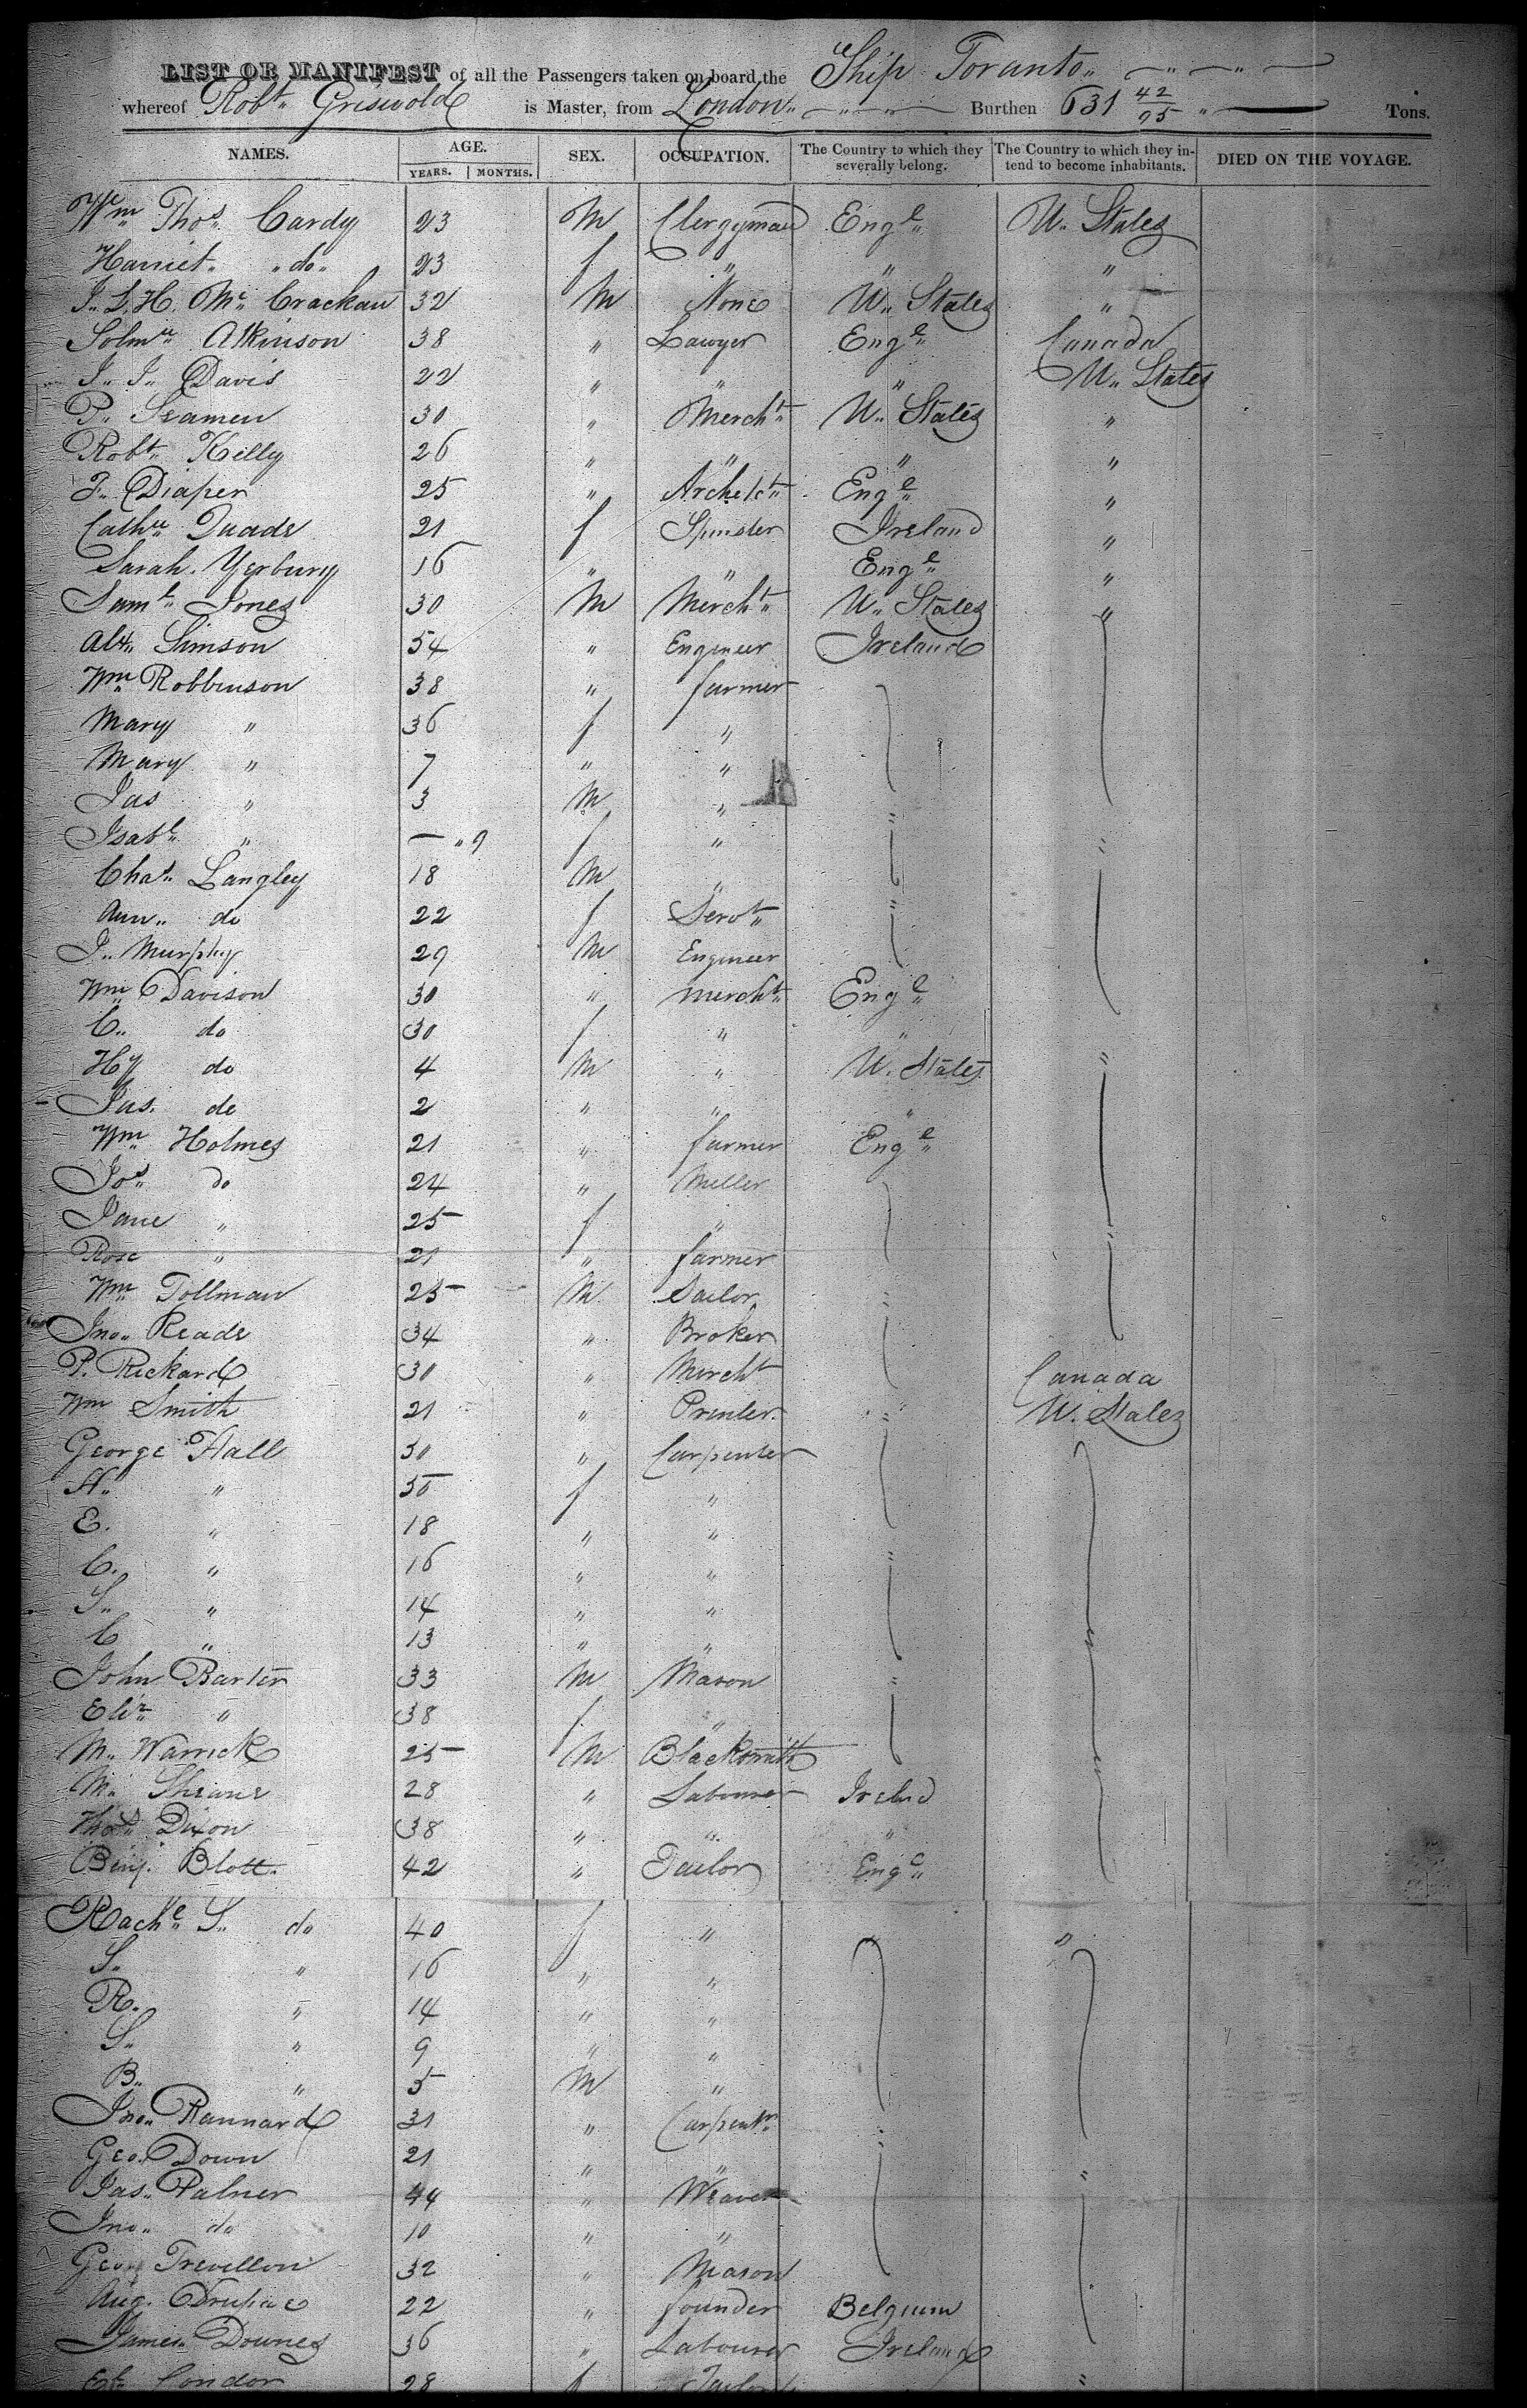 LIST OR MANIFEST of all the Passengers taken on board the Ship Toranto
whereof Robt. Griswold is Master, from London Burthen 631 42/95 Tons.
NAMES. AGE. SEX. OCCUPATION. The Country to which they severally belong. The Country to which they intend to become inhabitants. DIED ON THE VOYAGE.
YEARS. MONTHS.
Wm Thos. Cardy 23 M Clergyman Engd U. States
Harriet do 23 f " " "
J. L. H. Mc Crackan 32 M None U. States "
Solmn Atkinson 38 " Lawyer Engd Canada
J. J. Davis 22 " " " U. States
P. Seamen 30 " Mercht U. States "
Robt Killy 26 " " " "
F. Diaper 25 " Archetct Engd "
Cathn Quade 21 f Spinster Ireland "
Sarah Yerbury 16 " " Engd "
Saml Jones 30 M Mercht U. States "
Alx. Simson 54 " Engineer Ireland
Wm Robbinson 38 " farmer
Mary " 36 f "
Mary " 7 " "
Jas " 3 M "
Isabl " — " 9 f " "
Chas Langley 18 M "
Ann do 22 f Servt "
J. Murphy 29 M Engineer
Wm Davison 30 " mercht Engd
C. do 30 f " "
Hy do 4 M " U. States "
Jas. do 2 " " "
Wm Holmes 21 " farmer Engd
Jos do 24 " Miller
Jane " 25 f " "
Rose " 21 " farmer
Wm Tollman 25 M Sailor "
Jno. Reade 34 " Broker
P. Rickard 30 " Mercht Canada
Wm Smith 21 " Printer " U. States
George Hall 50 " Carpenter
H. " 50 f "
E. " 18 " "
C. " 16 " " "
S. " 14 " "
C " 13 " " "
John Barter 33 M Mason "
Eliz " 38 f "
M. Warrick 25 M Blacksmith "
M. Sheane 28 " Labourer Irelnd
Thos Dixon 38 " " "
Benj. Blott 42 " Tailor Engd
Rachl S. do 40 f " "
S. " 16 " "
R. " 14 " "
S. " 9 " "
B. " 5 M "
Jno. Rannard 31 " Carpentr "
Geo. Down 21 " " "
Jas. Palmer 44 " Weaver
Jno. do 10 " "
Geo Trevillon 32 " Mason
Aug. 22 " founder Belgium
James Downes 36 " Labourer Ireland
Condor 28 f Tailor "